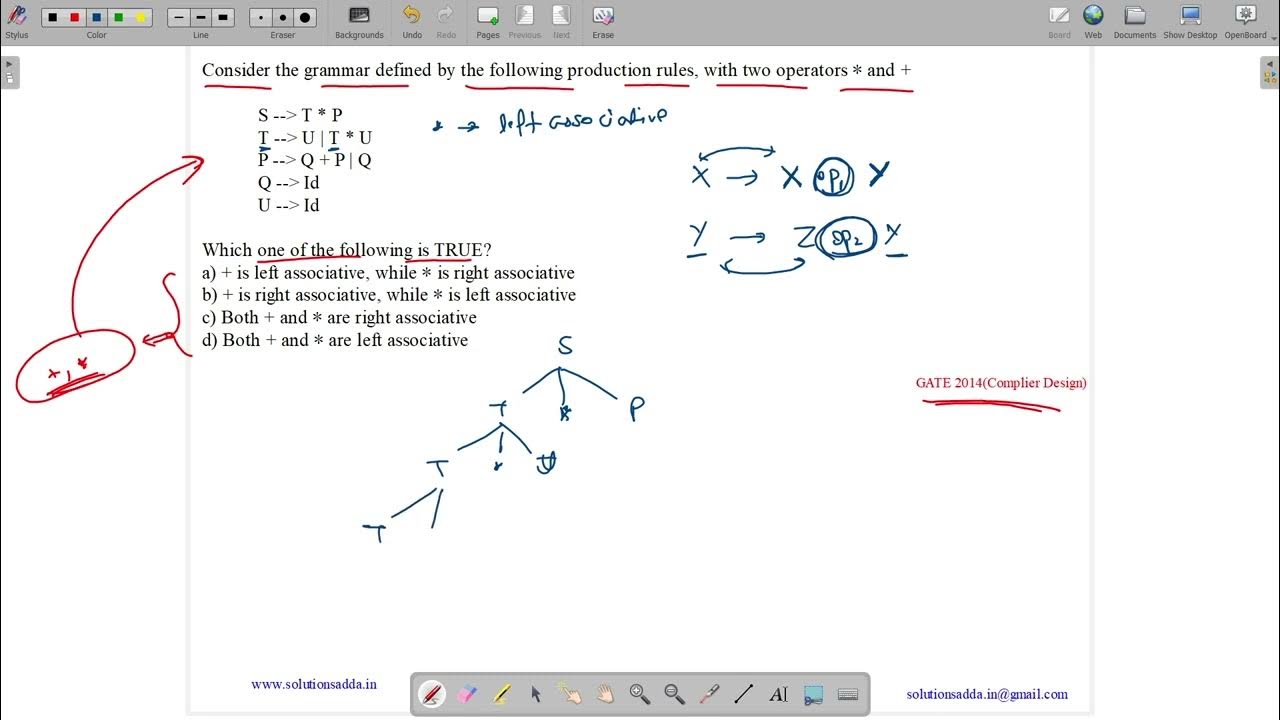 Stylus
Color
Line
Eraser
Backgrounds
Undo
Redo
Pages
Previous
Next
Erase
Board
Web
Documents
Show Desktop
OpenBoard
Consider the grammar defined by the following production rules, with two operators * and +
S --> T * P
T --> U | T * U
P --> Q + P | Q
Q --> Id
U --> Id
* → left associative
X → X op1 Y
Y → Z op2 Y
Which one of the following is TRUE?
a) + is left associative, while * is right associative
b) + is right associative, while * is left associative
c) Both + and * are right associative
d) Both + and * are left associative
+, *
S
T * P
T * U
T
GATE 2014(Complier Design)
www.solutionsadda.in
AI
solutionsadda.in@gmail.com